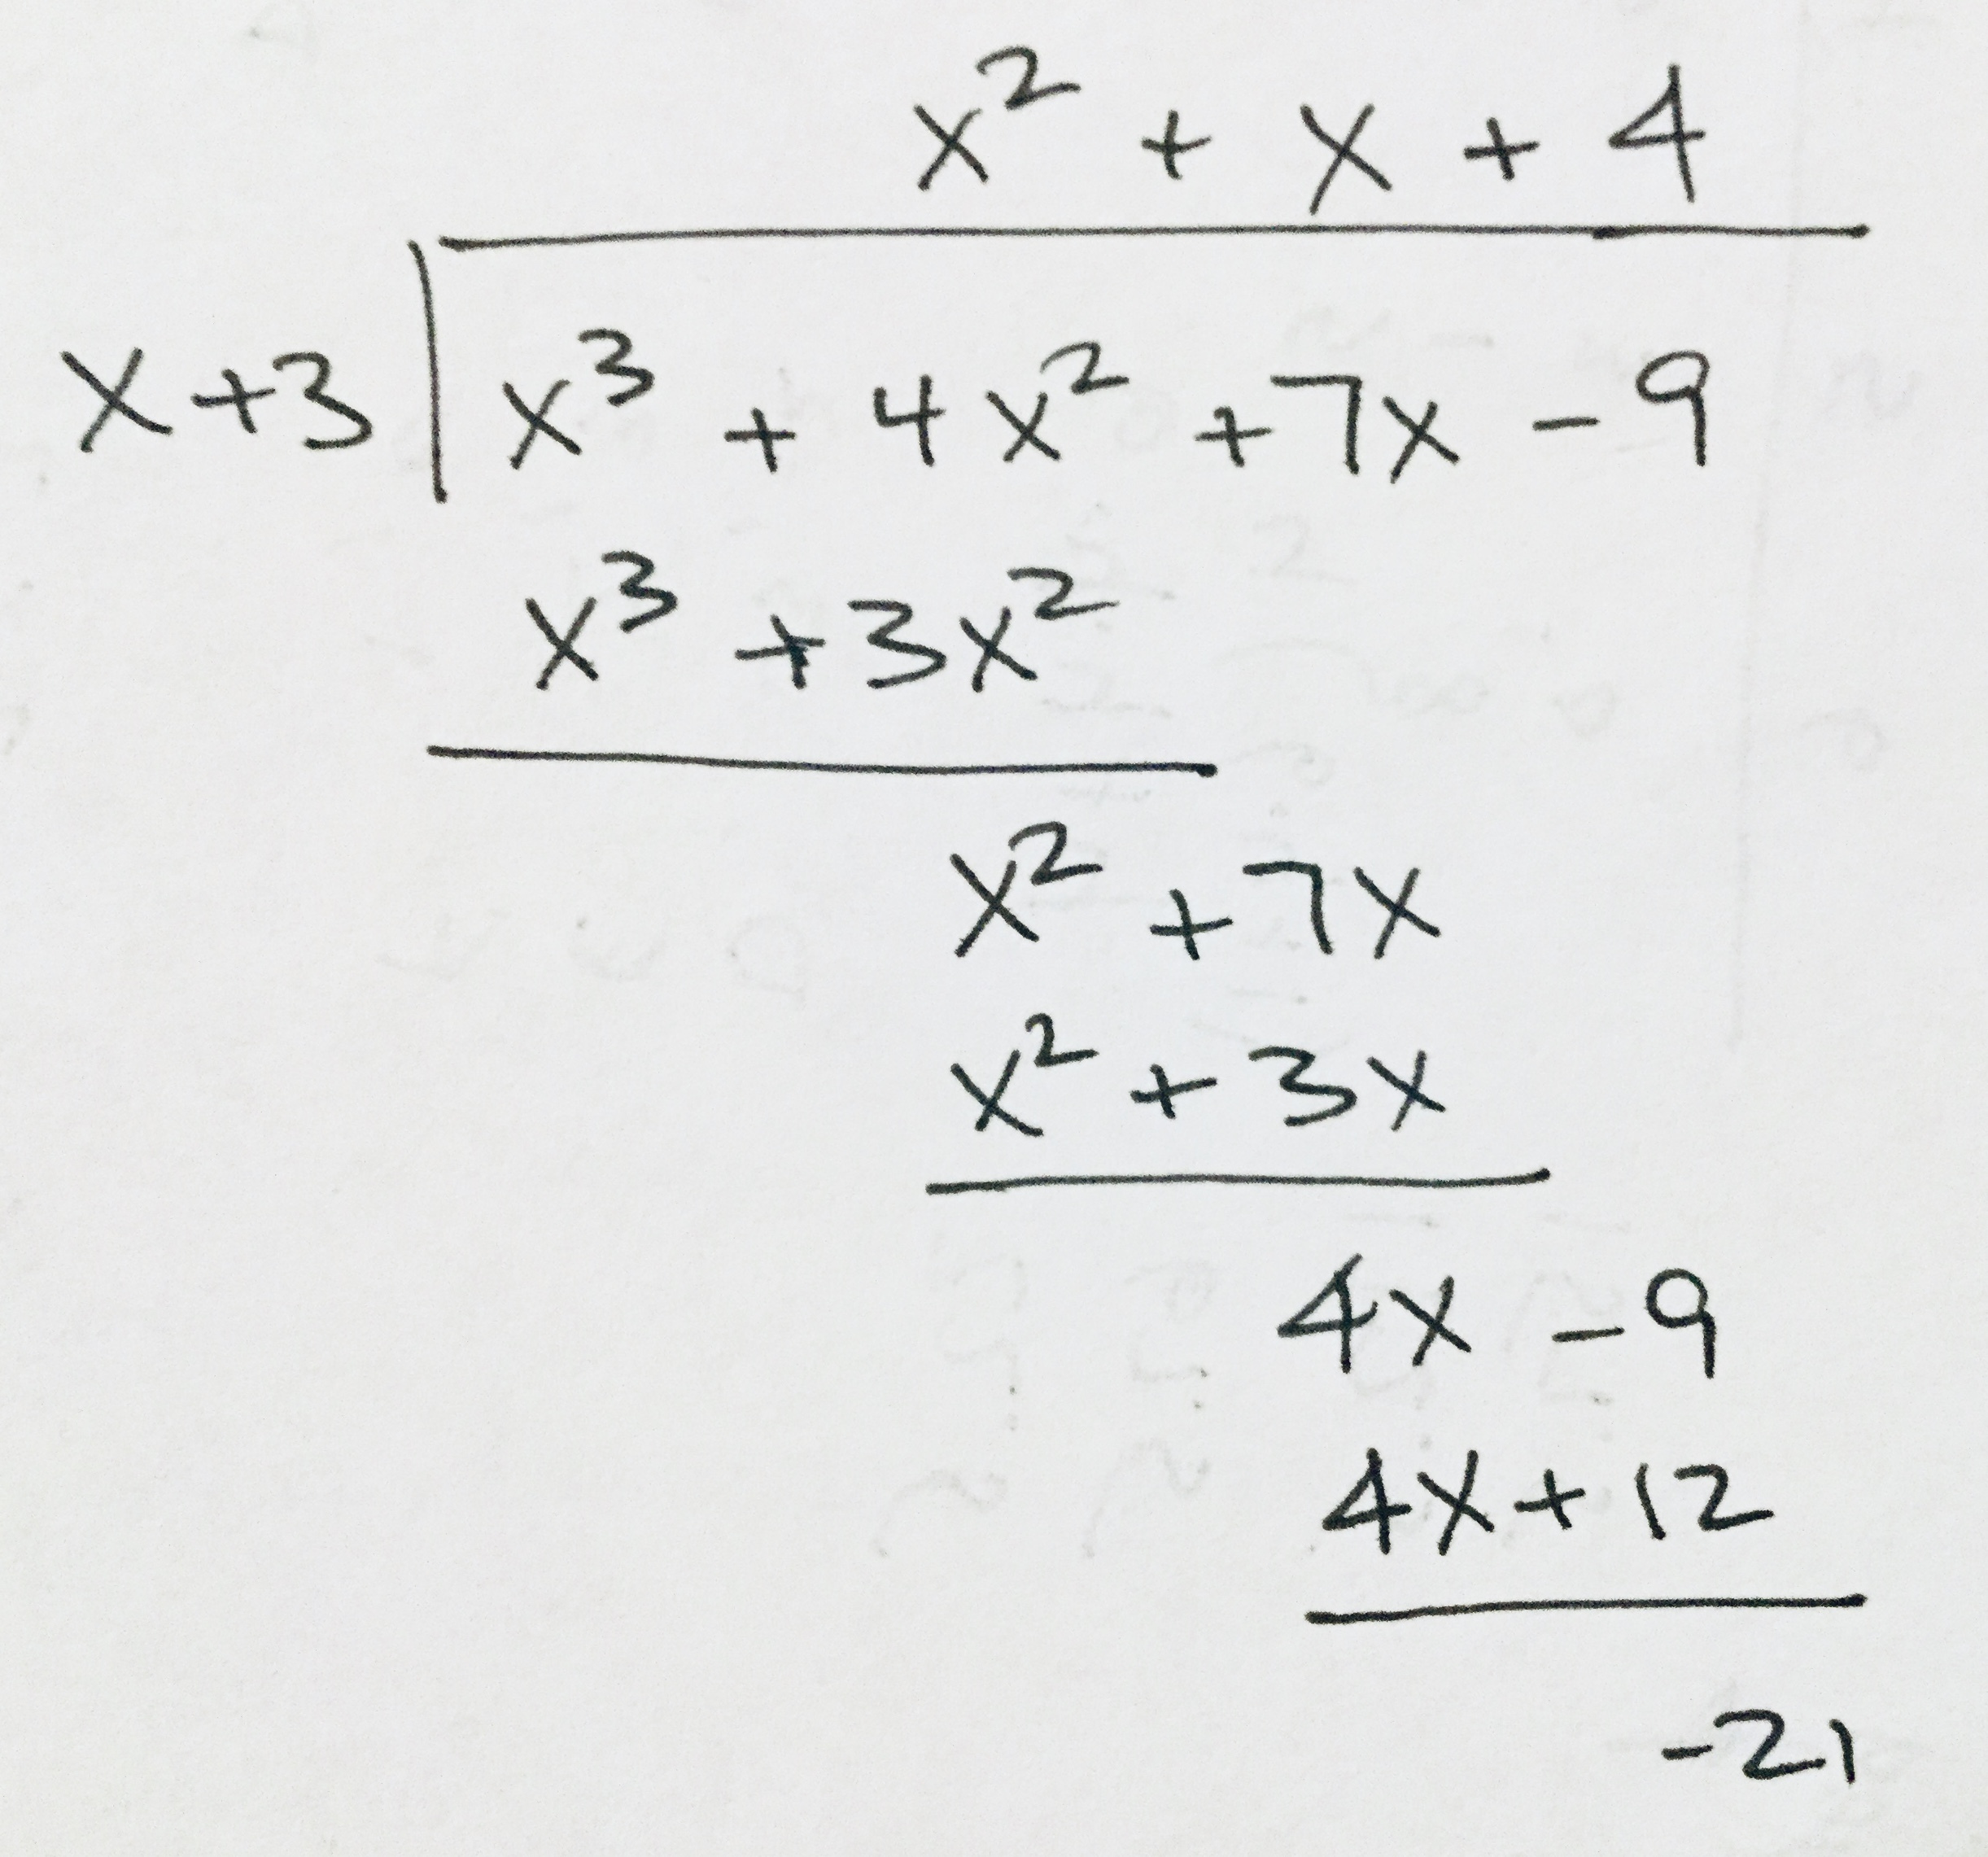 x² + x + 4
x+3 x³ + 4x² +7x - 9
x³ +3x²
x² +7x
x² + 3x
4x - 9
4x + 12
-21